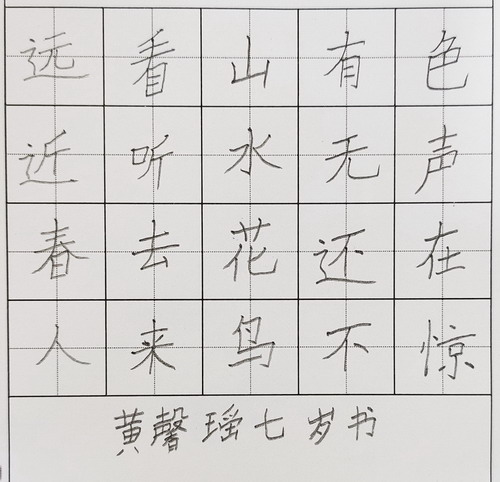 远看山有色
近听水无声
春去花还在
人来鸟不惊
黄馨瑶七岁书